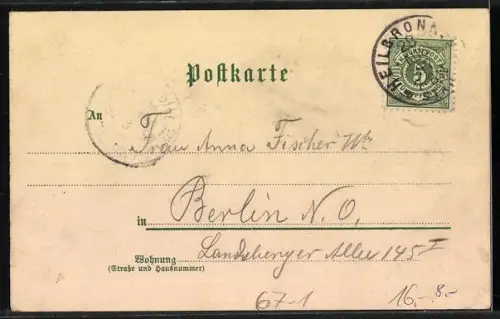 HEILBRONN
5
Postkarte
An Frau Anna Fischer Ww
in Berlin N.O.
Wohnung Landsberger Allee 145 I
(Straße und Hausnummer)
67-1 16.- 8.-